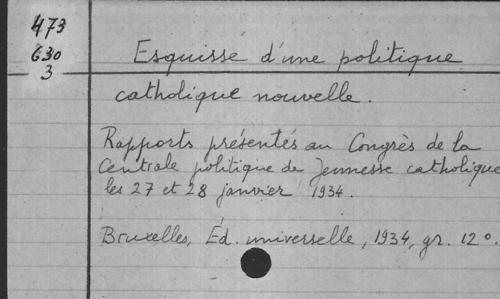 473
630
3
Esquisse d'une politique
catholique nouvelle.
Rapports présentés au Congrès de la
Centrale politique de Jeunesse catholique
les 27 et 28 janvier 1934.
Bruxelles, Éd. universelle, 1934, gr. 12°.